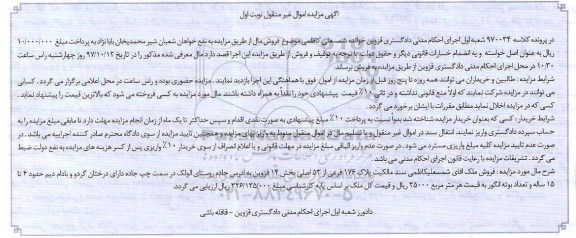 آگهی مزایده اموال غیر منقول نوبت اول
در پرونده کلاسه ۹۷۰۰۳۴ شعبه اول اجرای احکام مدنی دادگستری قزوین خوانده شمسعلی کاظمی موضوع فروش مال از طریق مزایده به نفع خواهان شعبان شیر محمدیخان بابا نژاد به پرداخت مبلغ ۱۰/۰۰۰/۰۰۰
ریال به عنوان اصل خواسته و به انضمام خسارات قانونی دیگر و حقوق دولت، با توجه به توقیف و فروش از طریق مزایده این اجرا قصد دارد مال معرفی شده مذکور را در تاریخ ۹۷/۱۰/۱۲ روز چهارشنبه راس ساعت
۱۰/۳۰ در محل اجرای احکام مدنی دادگستری قزوین از طریق مزایده به فروش برساند.
شرایط مزایده : طالبین و خریداران می توانند همه روزه تا پنج روز قبل از زمان مزایده از اموال فوق با هماهنگی این اجرا بازدید نمایند . مزایده حضوری بوده و راس ساعت در محل اعلامی برگزار می گردد . کسانی
می توانند در مزایده شرکت نمایند که اولاً منع قانونی نداشته و در ثانی ۱۰٪ قیمت پیشنهادی خود را نقداً به همراه داشته باشند مال مورد مزایده به کسی فروخته می شود که بالاترین قیمت را پیشنهاد نماید .
کسی که در مزایده اخلال نماید مطابق مقررات با ایشان برخورد می گردد .
شرایط خریدار : کسی که بعنوان خریدار مزایده شناخته شد بدواً نسبت به پرداخت ۱۰٪ مبلغ پیشنهادی به صورت نقدی اقدام و سپس حداکثر تا یک ماه از زمان انجام مزایده مهلت دارد تا مابقی مبلغ مزایده را به
حساب سپرده دادگستری واریز نمایند. انتقال سند در اموال غیر منقول و یا تسلیم مال در اموال منقول منوط به واریز بهای مزایده و همچنین تایید مزایده از سوی دادگاه محترم صادر کننده اجراییه می باشد . در
صورت عدم تایید مزایده کلیه مبالغ واریزی مسترد می شود. در صورت عدم واریز الباقی مبلغ مزایده در مهلت قانونی و یا اعلام انصراف از سوی خریدار ۱۰٪ واریزی پس از کسر هزینه های مزایده به نفع دولت ضبط
می گردد . تشریفات مزایده با رعایت قانون اجرای احکام مدنی می باشد .
شرح مال مورد مزایده : فروش ملک آقای شمسعلیکاظمی سند مالکیت پلاک ۱۷۶ فرعی از ۵۳ اصلی بخش ۱۴ قزوین به آدرس جاده روستای الولک در سمت چپ جاده دارای درختان گردو و بادام دیم حدود ۴ تا
۱۵ ساله و تعداد بوته انگور به قیمت هر متر مربع ۲۵۰۰۰ ریال و قیمت کل ملک بر اساس پایه کارشناسی مبلغ ۳۲۶/۱۲۵/۰۰۰ ریال ارزیابی می گردد.
دادورز شعبه اول اجرای احکام مدنی دادگستری قزوین - قافله باشی